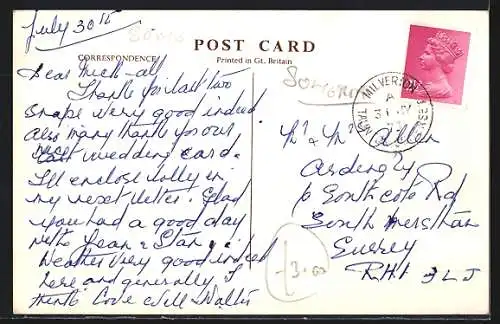 July 30th
Soms
POST CARD
CORRESPONDENCE
Printed in Gt. Britain
Dear Mick & all
Thanks for last two
snaps very good indeed
also many thanks for our
nice
last wedding card.
I'll enclose lolly in
my next letter. Glad
you had a good day
with Jean & Stan,
Weather very good indeed
here and generally I
think Love Will & Wallis
Somerset
MILVERTON
TAUNTON
Mr & Mrs Allen
Ardingly
Southcote Rd
South Merstham
Surrey
RH1 3LJ
£3.00